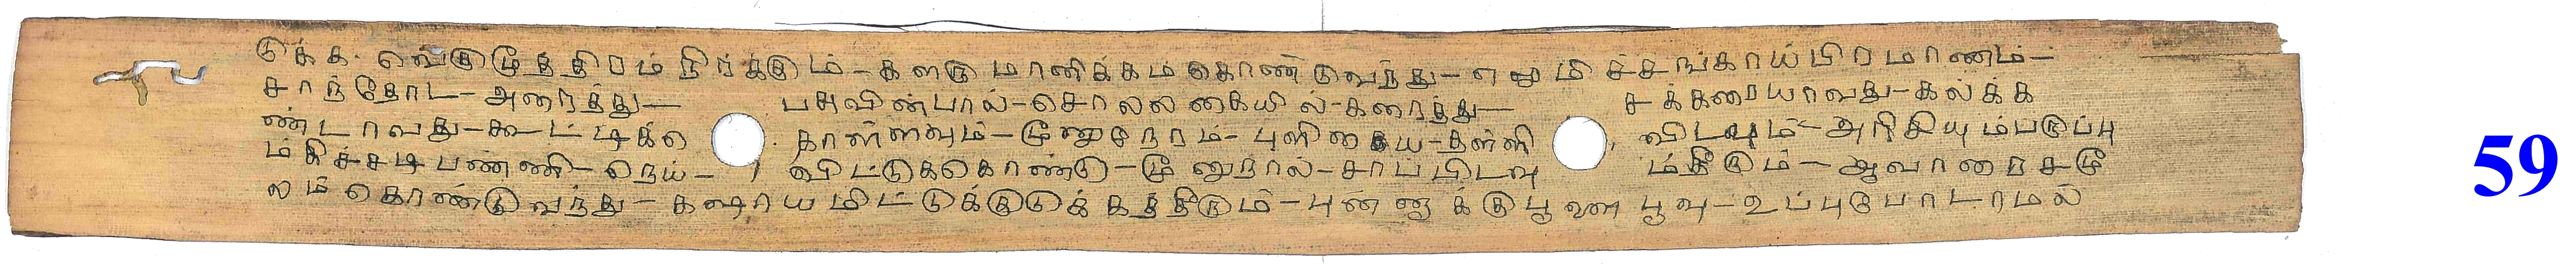 டுக்க. வெகுமூத்திரம் நிற்க்கும் - களரு மானிக்கம் கொண்டுவந்து - எலுமிச்சங்காய் பிரமாணம் -
சாந்தோட - அரைத்து - பசுவின்பால் - சொலல கையில் - கரைத்து - சக்கரையாவது - கல்க்க
ண்டாவது - கூட்டிக்க காள்ளவும் - மூனுநேரம் - புளி கைய - தள்ளி விடவும் - அரிசியும் பருப்பு
ம் கிச்சடி பண்ணி - நெய் - விட்டுக்கொண்டு - மூனுநால் - சாப்பிடவு ம் தீரும் - ஆவாரைசமூ
லம் கொண்டுவந்து - கஷாயமிட்டுக்குடுக்கத்தீரும் - புண்ணுக்கு பூவுண பூவு - உப்பு போடாமல்
59